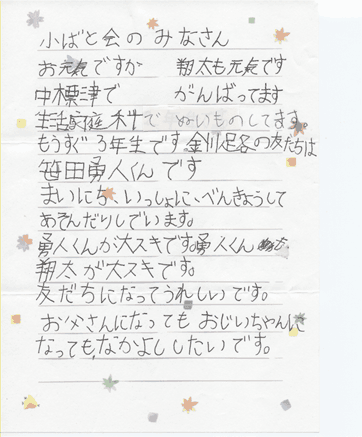 小ばと会のみなさん
お元気ですか 翔太も元気です
中標津で がんばってます
生活家庭科で ぬいものしてます。
もうすぐ3年生です 釧路の友だちは
笹田勇人くんです
まいにち、いっしょに、べんきょうして
あそんだりしています。
勇人くんが大スキです。勇人くん
翔太が大スキです。
友だちになってうれしいです。
お父さんになってもおじいちゃんに
なっても、なかよししたいです。